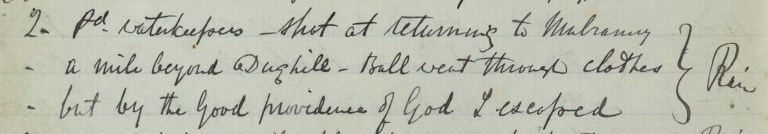 2 - Pd. waterkeepers - shot at returning to Mulranny
- a mile beyond Dughill - Ball went through clothes
- but by the Good providence of God I escaped
Rain